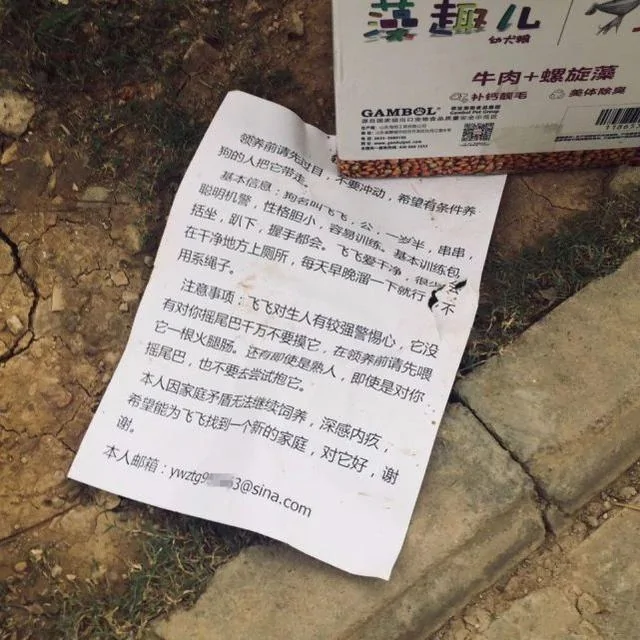 藻趣儿
幼犬粮
牛肉+螺旋藻
补钙靓毛
美体除臭
GAMBOL
领养前请先过目，不要冲动，希望有条件养
狗的人把它带走。
基本信息：狗名叫飞飞，公，一岁半，串串，
聪明机警，性格胆小，容易训练。基本训练包
括坐，趴下，握手都会。飞飞爱干净，很少
在干净地方上厕所，每天早晚溜一下就行，不
用系绳子。
注意事项：飞飞对生人有较强警惕心，它没
有对你摇尾巴千万不要摸它，在领养前请先喂
它一根火腿肠。还有即使是熟人，即使是对你
摇尾巴，也不要去尝试抱它。
本人因家庭矛盾无法继续饲养，深感内疚，
希望能为飞飞找到一个新的家庭，对它好，谢
谢。
本人邮箱：ywztg9 3@sina.com